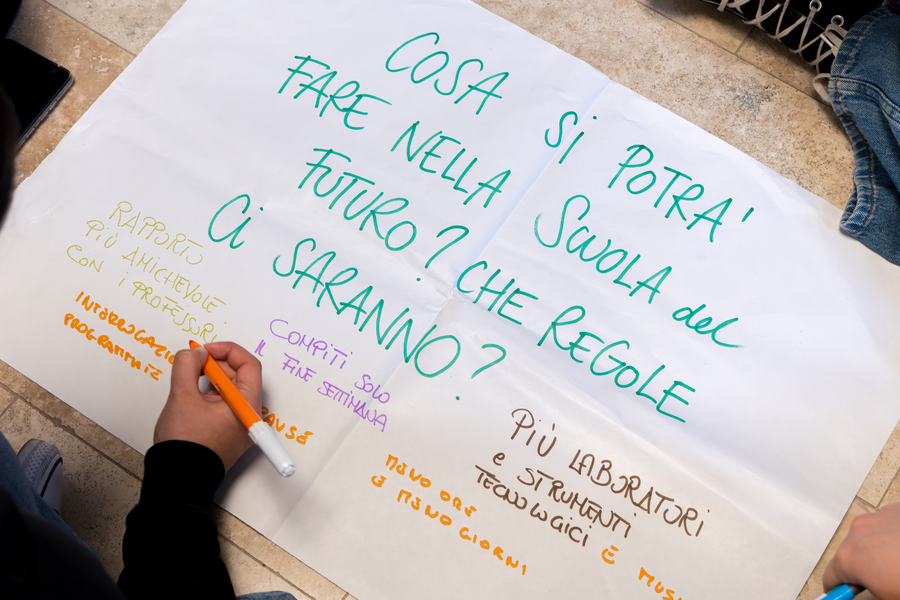 COSA SI POTRA'
FARE NELLA SCUOLA del
FUTURO? CHE REGOLE
Ci SARANNO?
RAPPORTO
PIÙ AMICHEVOLE
CON i PROFESSORi
INTERROGAZIO
PROGRAMMATE
COMPITI SOLO
IL FINE SETTIMANA
PAUSE
PIÙ LABORATORI
e STRUMENTI
TECNOLOGICI E MUSI
MENO ORE
E MENO GIORNI